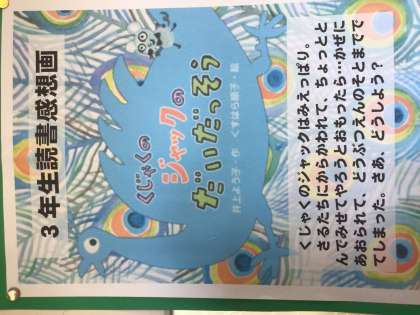 3年生読書感想画
くじゃくの
ジャックの
だいだっそう
井上よう子・作 くすはら順子・絵
くじゃくのジャックはみえっぱり。
さるたちにからかわれて、ちょっとと
んでみせてやろうとおもったら…かぜに
あおられて、どうぶつえんのそとまでで
てしまった。さあ、どうしよう？